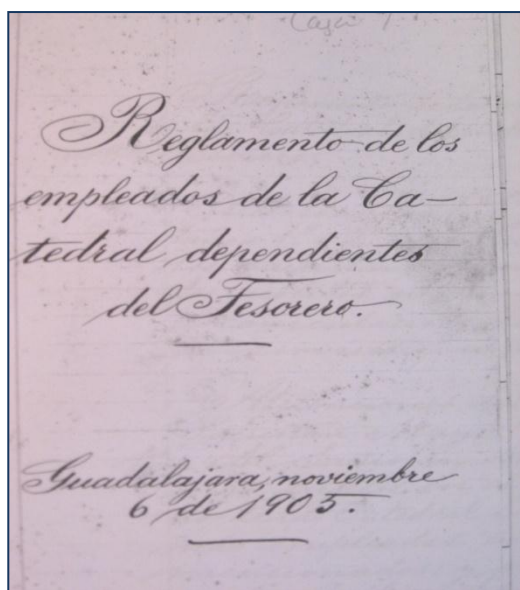 Reglamento de los
empleados de la Ca-
tedral dependientes
del Tesorero.
Guadalajara, noviembre
6 de 1905.